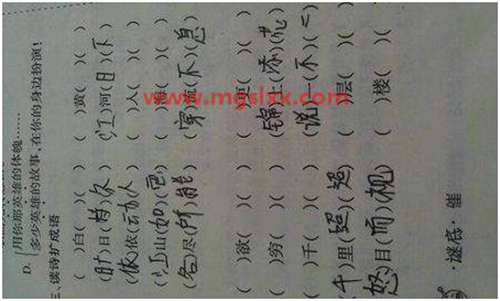 D. 用你那英雄的体魄……
多少英雄的故事,在你的身边扮演!
三、读诗扩成语
( )白( )( ) ( )黄( )( )
( )日( )( ) (江)河(日)(下)
(依)依(动)(人) ( )入( )( )
(江)山(如)(画) ( )海( )( )
(各)尽(所)(能) (穿)流(不)(息)
( )欲( )( ) ( )更( )( )
( )穷( )( ) (锦)上(添)(花)
( )千( )( ) (说)一(不)(二)
(千)里(迢)(迢) ( )层( )( )
(怒)目(而)(视) ( )楼( )( )
·谜底·催
www.mgslxx.com